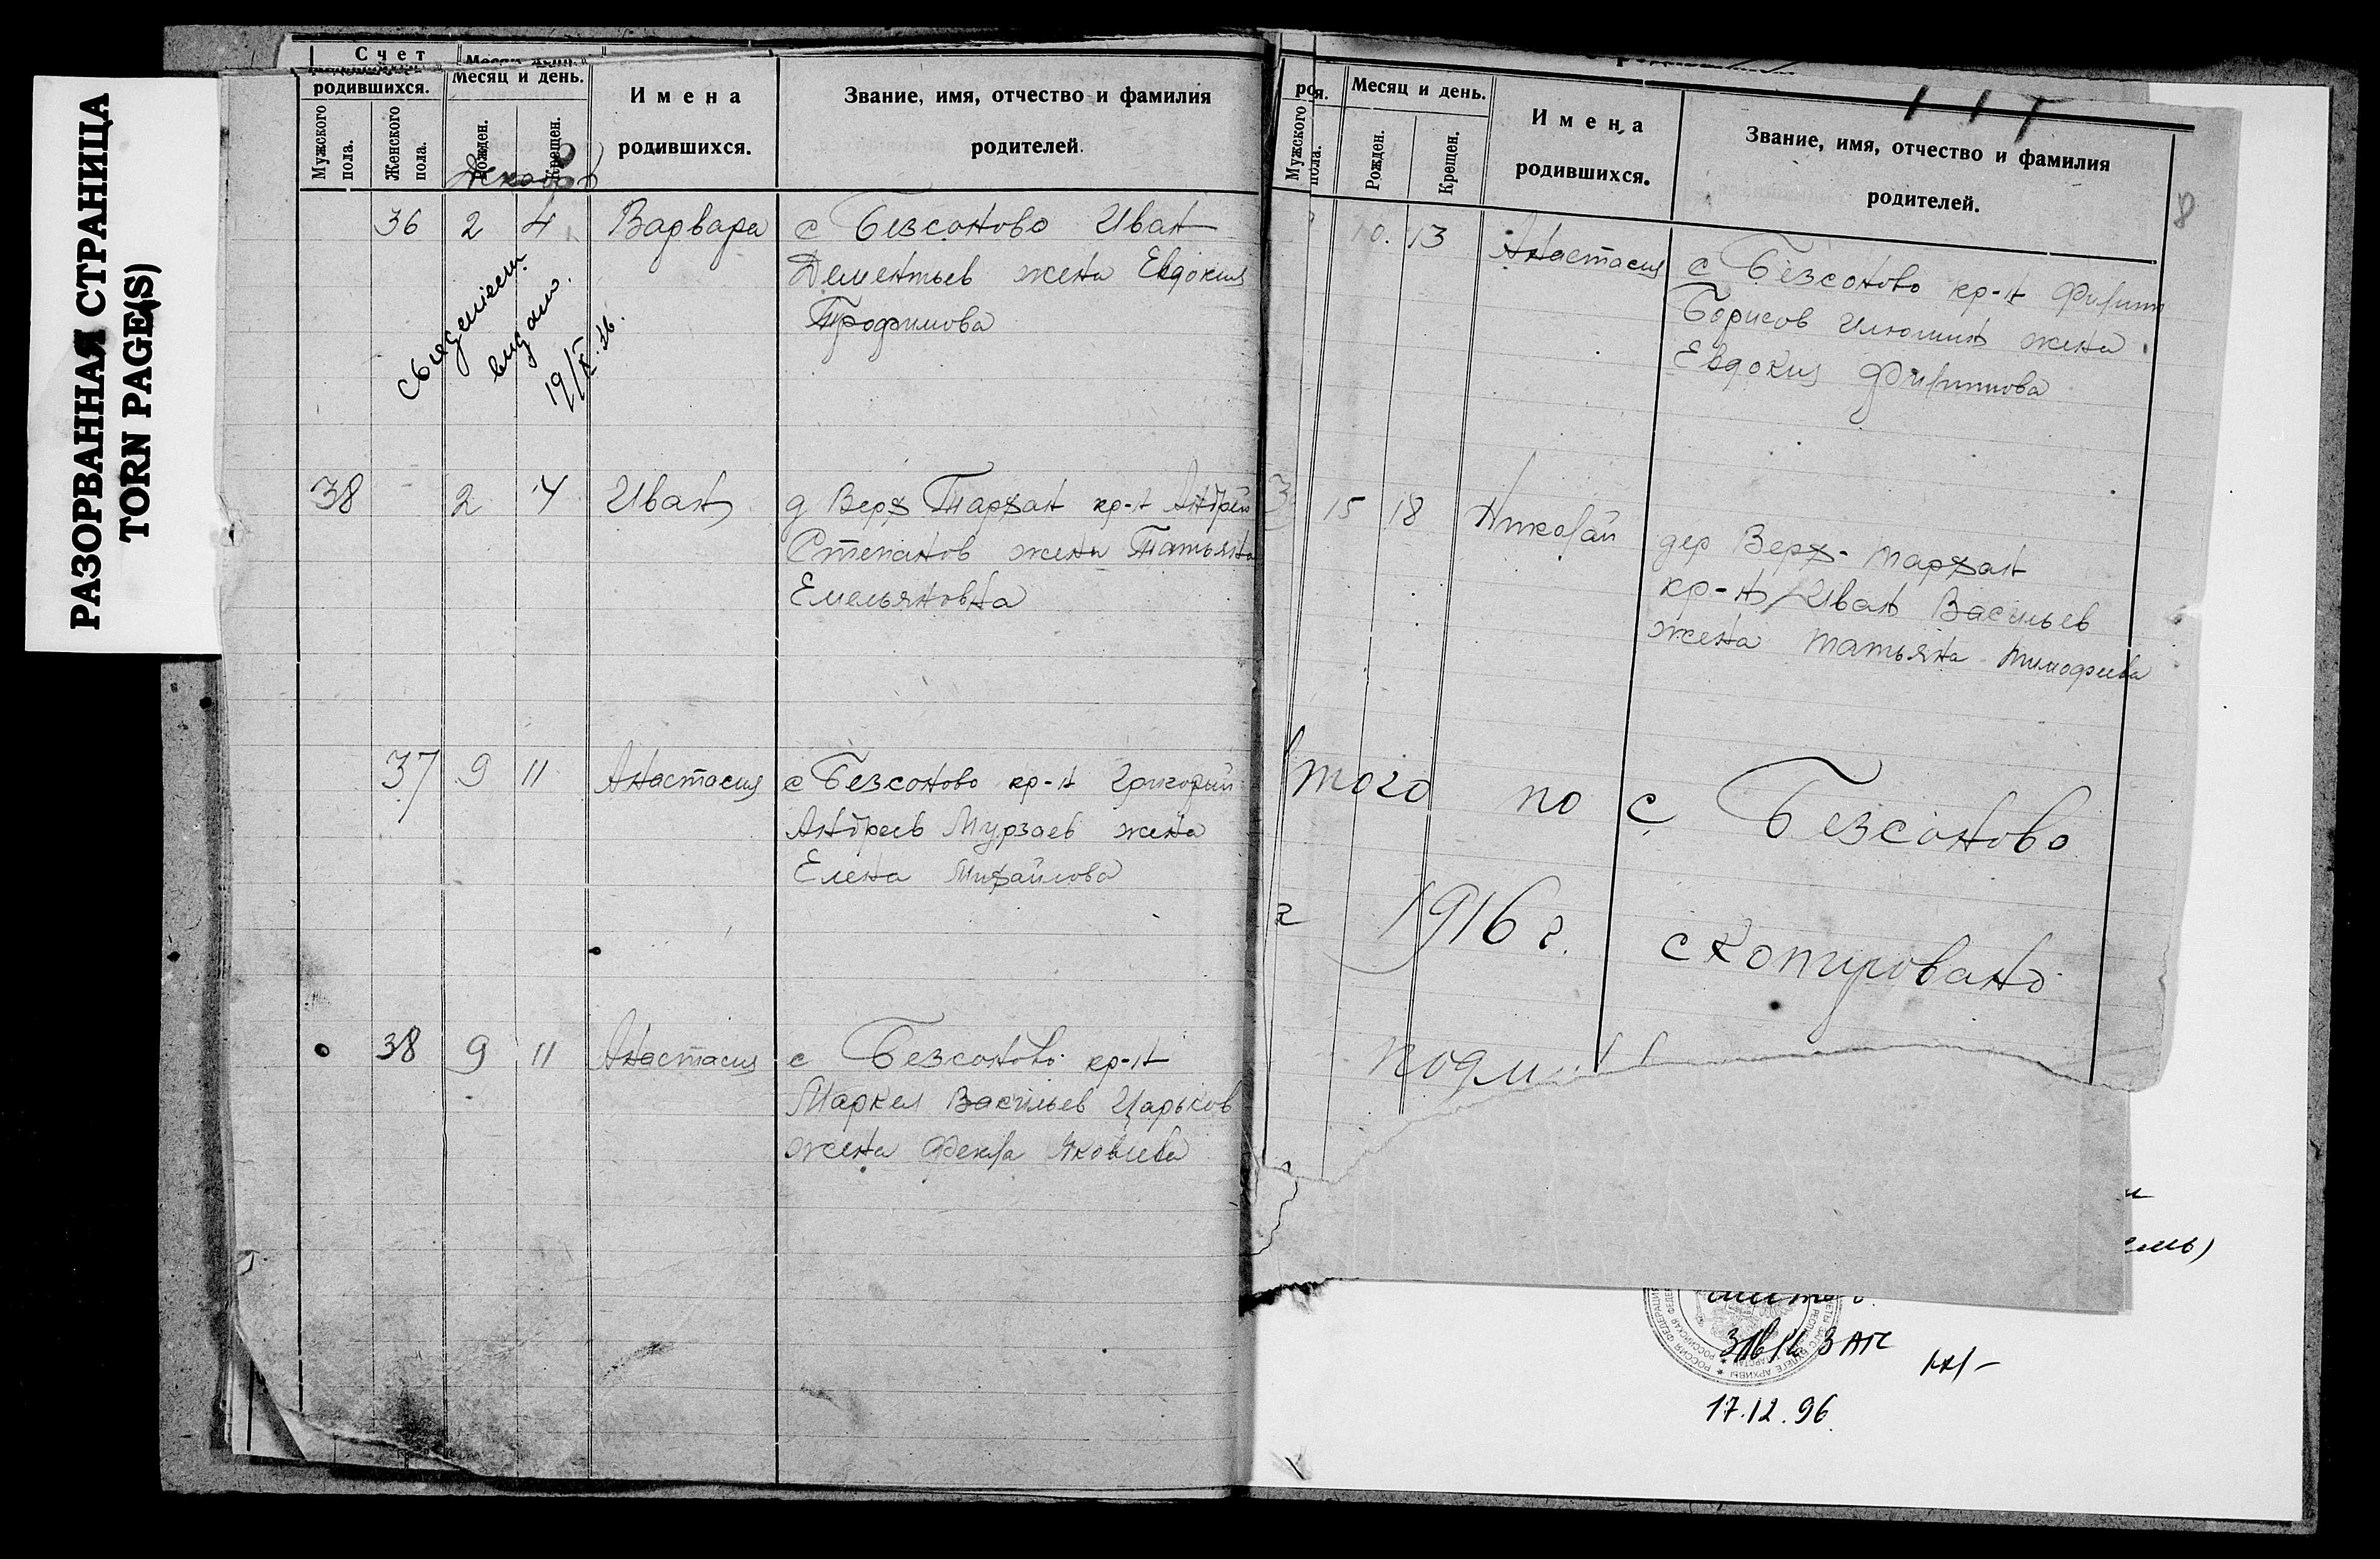 РАЗОРВАННАЯ СТРАНИЦА
TORN PAGE(S)
Счет
родившихся.
Мужского пола.
Женского пола.
Месяц и день.
Рожден.
Крещен.
Имена
родившихся.
Звание, имя, отчество и фамилия
родителей.
Декабрь
36 2 4 Варвара с Безсоново Иван
Дементьев жена Евдокия
Трофимова
выдан.
19/X.26.
38 2 4 Иван д Верх Тархан кр-н Андрей
Степанов жена Татьяна
Емельяновна
37 9 11 Анастасия с Безсоново кр-н Григорий
Андреев Мурзаев жена
Елена Михайлова
38 9 11 Анастасия с Безсоново кр-н
Маркел Васильев Царьков
жена Фекла Яковлева
Мужского пола.
Месяц и день.
Рожден.
Крещен.
Имена
родившихся.
Звание, имя, отчество и фамилия
родителей.
8
10. 13 Анастасия с Безсоново кр-н Филипп
Борисов Илюшин жена
Евдокия Филиппова
15 18 Николай дер Верх-Тархан
кр-н Иван Васильев
жена Татьяна Тимофеева
итого по с Безсоново
г 1916 г. скопировано
ЗАГС
17.12.96